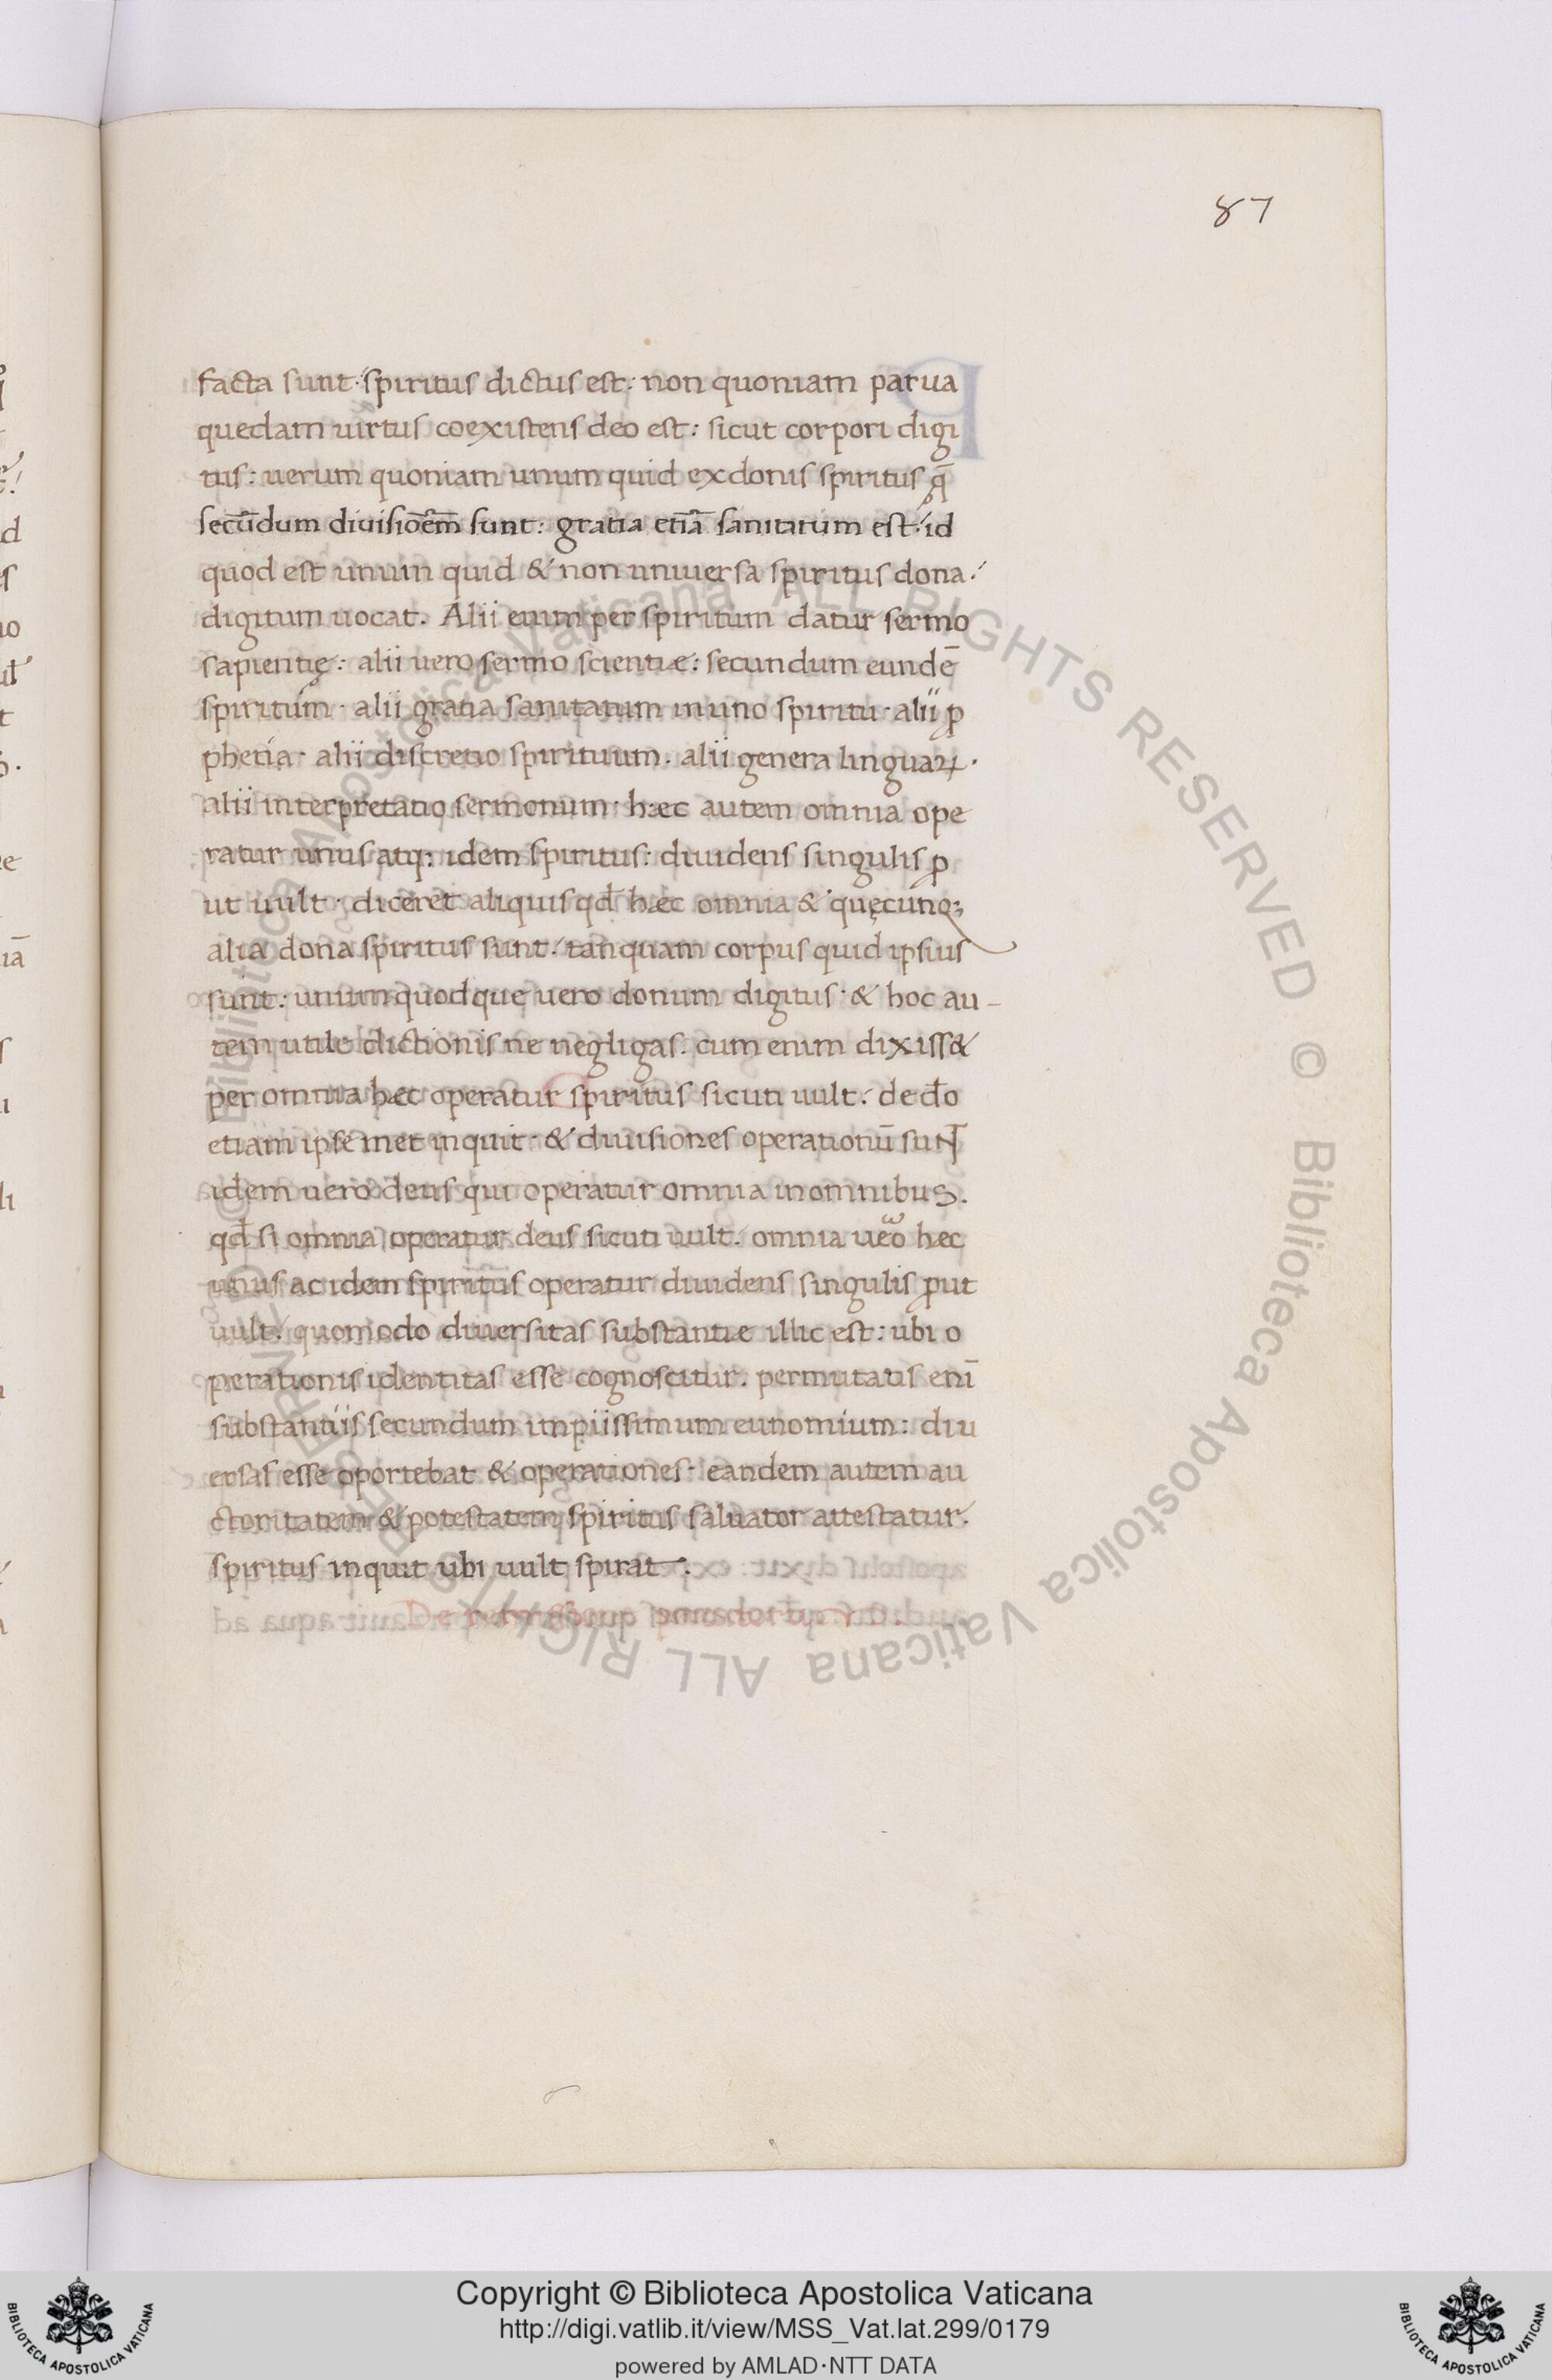 87
facta sunt· spiritus dictus est: non quoniam parua
quedam uirtus coexistens deo est: sicut corpori digi
tus: uerum quoniam unum quid ex donis spiritus q̄
secūdum diuisiōem̄ sunt: gratia etiā sanitatum est: id
quod est unum quid & non uniuersa spiritus dona:
digitum uocat. Alii enim per spiritum datur sermo
sapientię: alii uero sermo scientiæ: secundum eundē
spiritum· alii gratia sanitatum in uno spiritu· alii ꝓ
phetia· alii discretio spirituum. alii genera linguaꝝ·
alii interpretatio sermonum· hæc autem omnia ope
ratur unus atq: idem spiritus: diuidens singulis ꝓ
ut uult· diceret aliquis qđ hæc omnia & quęcunq;
alia dona spiritus sunt: tanquam corpus quid ipsius
sunt: unumquodque uero donum digitus· & hoc au-
tem utile dictionis ne negligas. cum enim dixiss&
per omnia hæc operatur spiritus sicuti uult: de đo
etiam ipsemet inquit· & diuisiones operationū sunt
idem uero deus qui operatur omnia in omnibus.
qđ si omnia operatur deus sicuti uult: omnia ueo hæc
unus ac idem spiritus operatur diuidens singulis ꝓut
uult: quomodo diuersitas substantiæ illic est: ubi o
perationis identitas esse cognoscitur. permutatis enī
substantiis secundum impiissimum eunomium: diu
ersas esse oportebat & operationes· eandem autem au
ctoritatem & potestatem spiritus saluator attestatur.
spiritus inquit ubi uult spirat·
Copyright © Biblioteca Apostolica Vaticana
http://digi.vatlib.it/view/MSS_Vat.lat.299/0179
powered by AMLAD·NTT DATA
BIBLIOTECA APOSTOLICA VATICANA
BIBLIOTECA APOSTOLICA VATICANA
© Biblioteca Apostolica Vaticana ALL RIGHTS RESERVED © Biblioteca Apostolica Vaticana ALL RIGHTS RESERVED